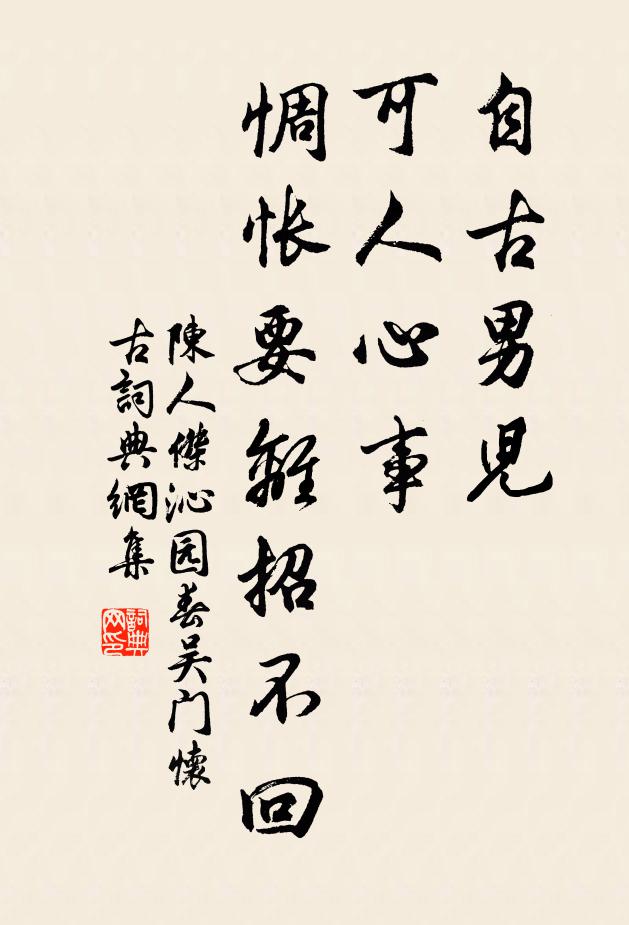 自古男児
可人心事
惆怅要離招不回
陳人傑沁园春吴门懷
古詞典網集
詞典网印